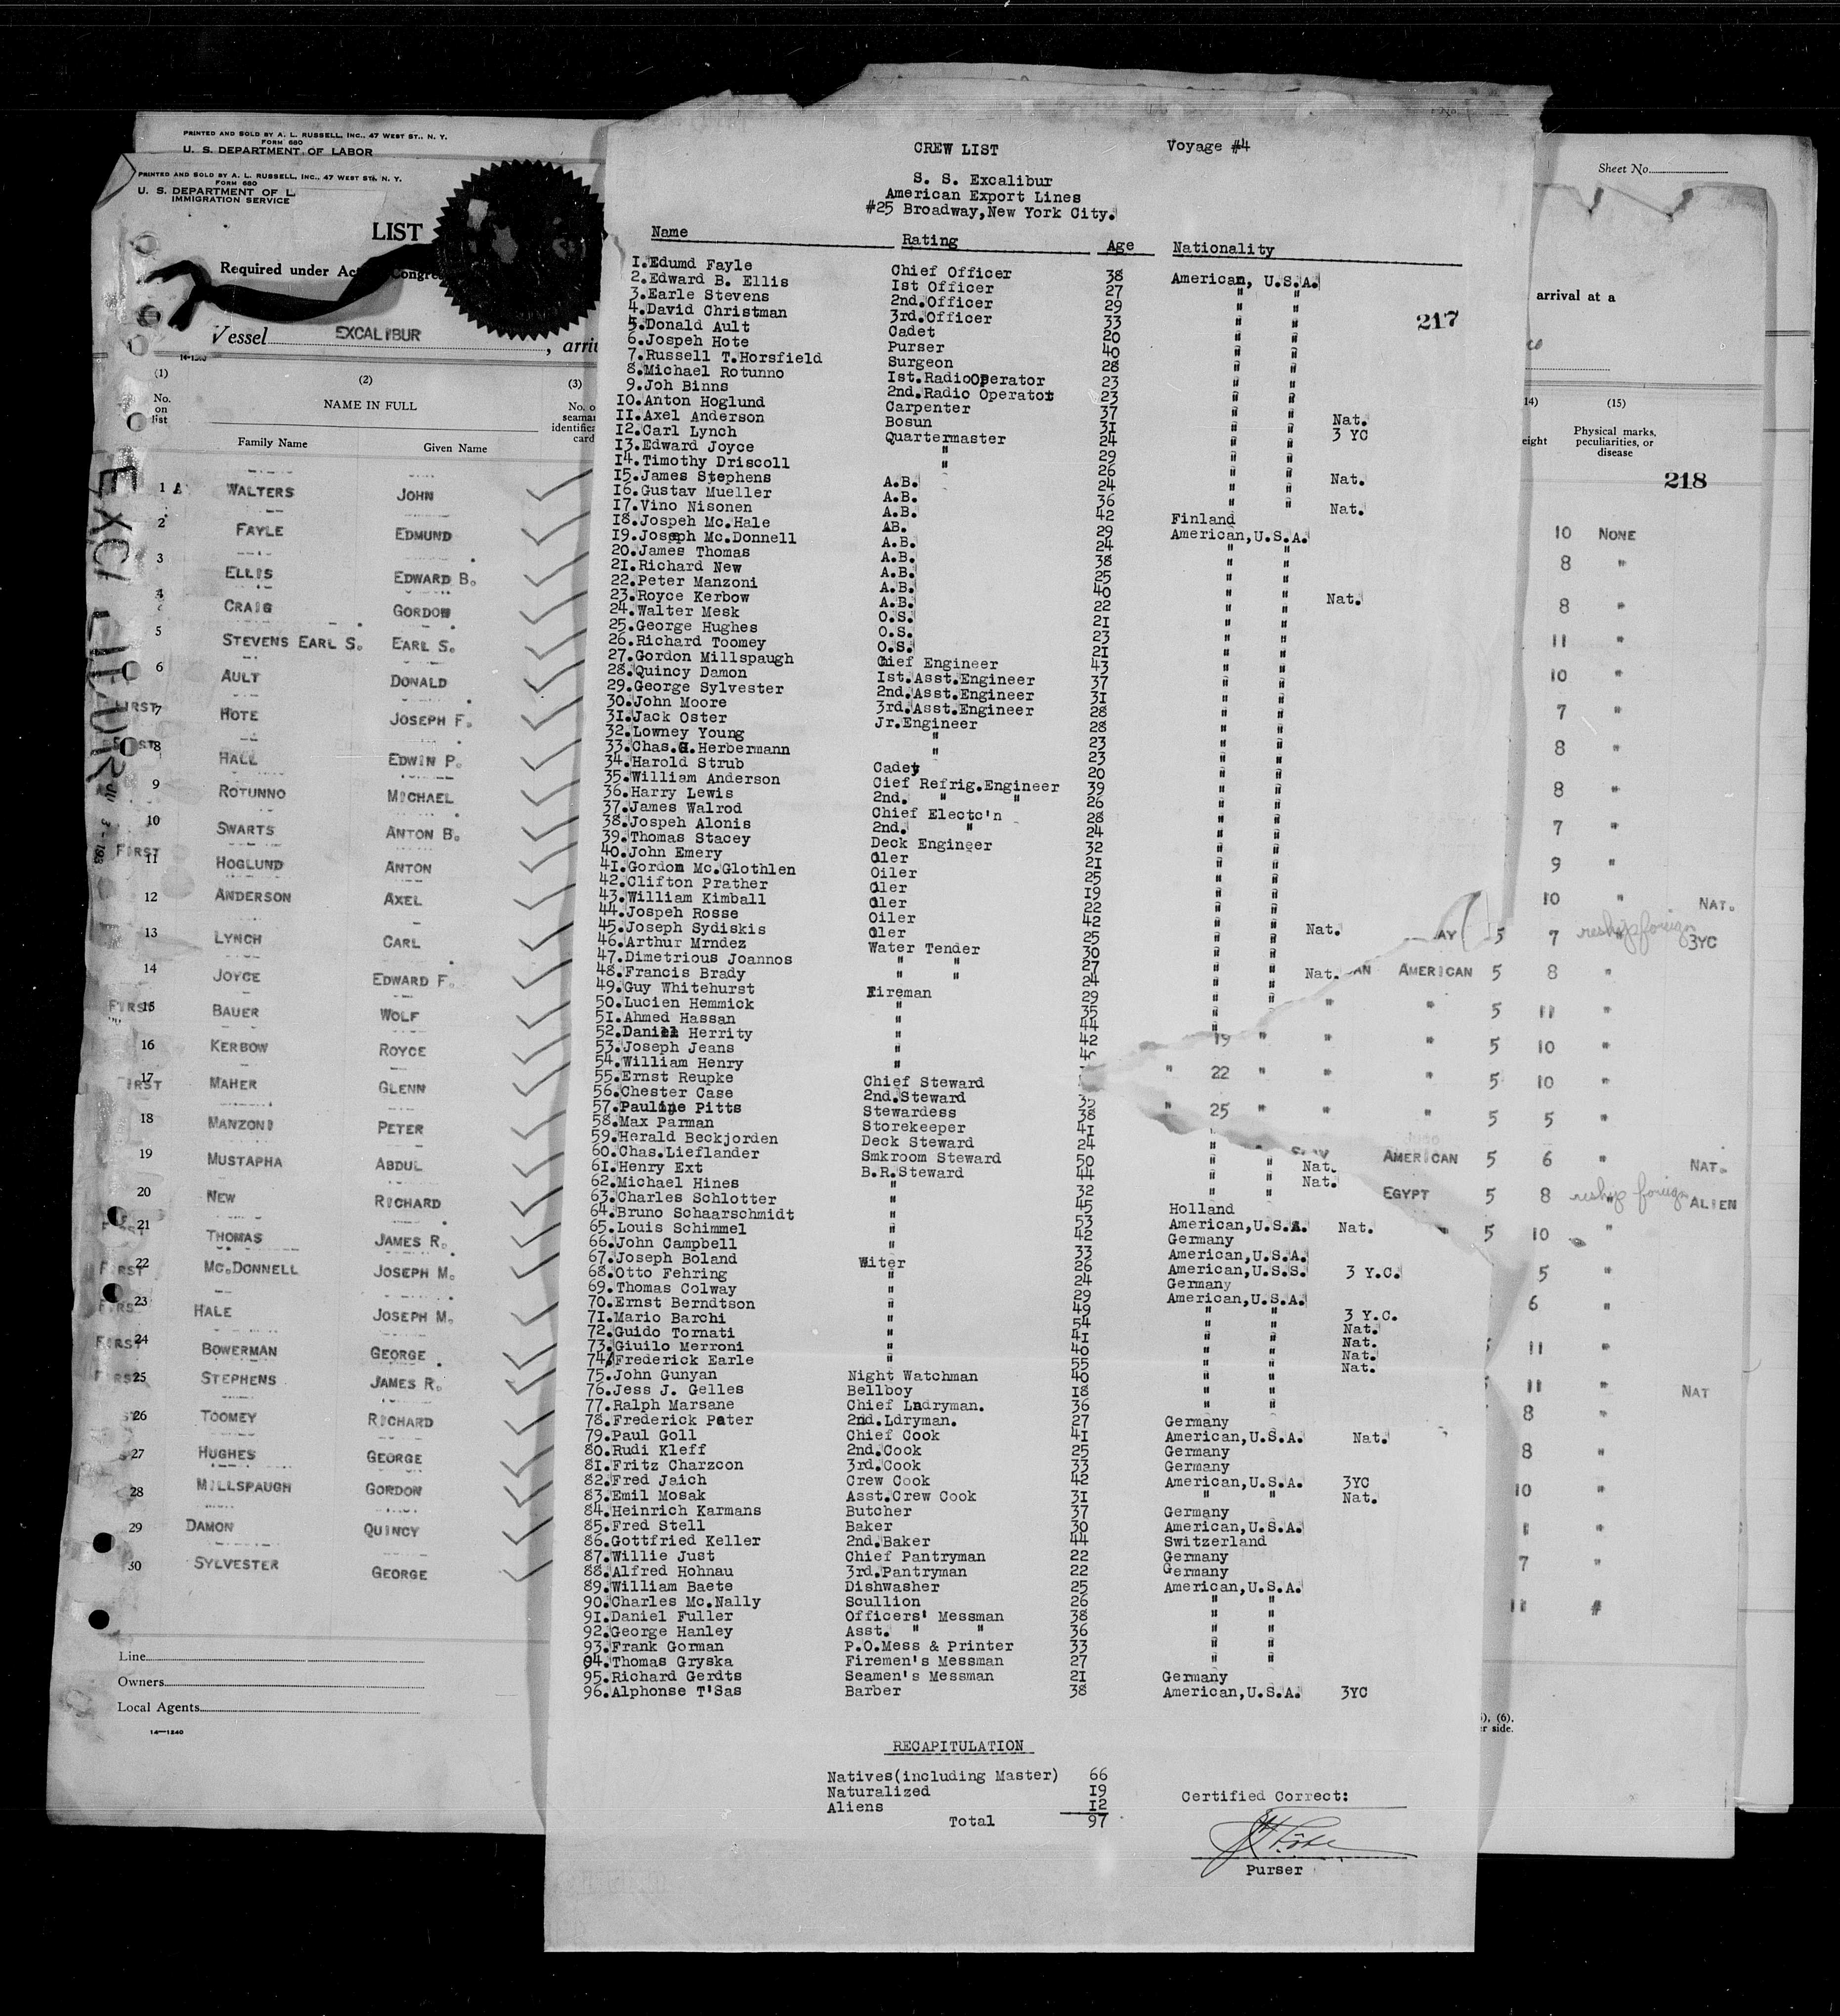 PRINTED AND SOLD BY A. L. RUSSELL, INC., 47 WEST ST., N. Y.
FORM 680
U. S. DEPARTMENT OF LABOR
PRINTED AND SOLD BY A. L. RUSSELL, INC., 47 WEST ST., N. Y.
FORM 680
U. S. DEPARTMENT OF L
IMMIGRATION SERVICE
LIST
Required under Act Congre
Vessel EXCALIBUR , arri
14-1240
(1) (2) (3)
No. on list NAME IN FULL No. o seama identifica card
Family Name Given Name
EXCALIBUR
1 A WALTERS JOHN
2 FAYLE EDMUND
3 ELLIS EDWARD B.
4 CRAIG GORDON
5 STEVENS EARL S. EARL S.
6 AULT DONALD
FIRST 7 HOTE JOSEPH F.
8 HALL EDWIN P.
9 ROTUNNO MICHAEL
10 SWARTS ANTON B.
FIRST 11 HOGLUND ANTON
12 ANDERSON AXEL
13 LYNCH CARL
14 JOYCE EDWARD F.
FIRST 15 BAUER WOLF
16 KERBOW ROYCE
FIRST 17 MAHER GLENN
18 MANZONI PETER
19 MUSTAPHA ABDUL
20 NEW RICHARD
21 THOMAS JAMES R.
FIRST 22 MC.DONNELL JOSEPH M.
23 HALE JOSEPH M.
FIRST 24 BOWERMAN GEORGE
FIRST 25 STEPHENS JAMES R.
26 TOOMEY RICHARD
27 HUGHES GEORGE
28 MILLSPAUGH GORDON
29 DAMON QUINCY
30 SYLVESTER GEORGE
Line
Owners
Local Agents
14—1240
CREW LIST Voyage #4
S. S. Excalibur
American Export Lines
#25 Broadway,New York City.
Name Rating Age Nationality
217
1.Edumd Fayle Chief Officer 38 American, U.S.A.
2.Edward B. Ellis Ist Officer 27 " "
3.Earle Stevens 2nd.Officer 29 " "
4.David Christman 3rd.Officer 33 " "
5.Donald Ault Cadet 20 " "
6.Jospeh Hote Purser 40 " "
7.Russell T.Horsfield Surgeon 28 " "
8.Michael Rotunno Ist.RadioOperator 23 " "
9.Joh Binns 2nd.Radio Operator 23 " "
10.Anton Hoglund Carpenter 37 " " Nat.
11.Axel Anderson Bosun 31 " " 3 YC
12.Carl Lynch Quartermaster 24 " "
13.Edward Joyce " 29 " "
14.Timothy Driscoll " 26 " " Nat.
15.James Stephens A.B. 24 " "
16.Gustav Mueller A.B. 36 " " Nat.
17.Vino Nisonen A.B. 42 Finland
18.Jospeh Mc.Hale AB. 29 American,U.S.A.
19.Joseph Mc.Donnell A.B. 24 " "
20.James Thomas A.B. 38 " "
21.Richard New A.B. 25 " "
22.Peter Manzoni A.B. 40 " " Nat.
23.Royce Kerbow A.B. 22 " "
24.Walter Mesk O.S. 21 " "
25.George Hughes O.S. 23 " "
26.Richard Toomey O.S. 21 " "
27.Gordon Millspaugh Chief Engineer 43 " "
28.Quincy Damon Ist.Asst.Engineer 37 " "
29.George Sylvester 2nd.Asst.Engineer 31 " "
30.John Moore 3rd.Asst.Engineer 28 " "
31.Jack Oster Jr.Engineer 28 " "
32.Lowney Young " 23 " "
33.Chas.G.Herbermann " 23 " "
34.Harold Strub Cadet 20 " "
35.William Anderson Cief Refrig.Engineer 39 " "
36.Harry Lewis 2nd. " " 26 " "
37.James Walrod Chief Electc'n 28 " "
38.Jospeh Alonis 2nd. " 24 " "
39.Thomas Stacey Deck Engineer 32 " "
40.John Emery Oler 21 " "
41.Gordon Mc.Glothlen Oiler 25 " "
42.Clifton Prather Oler 19 " "
43.William Kimball Oler 22 " "
44.Jospeh Rosse Oiler 42 " " Nat.
45.Joseph Sydiskis Oler 25 " "
46.Arthur Mrndez Water Tender 30 " "
47.Dimetrious Joannos " " 27 " " Nat.
48.Francis Brady " " 24 " "
49.Guy Whitehurst Fireman 29 " "
50.Lucien Hemmick " 35 " "
51.Ahmed Hassan " 44 "
52.Daniel Herrity " 42
53.Joseph Jeans "
54.William Henry "
55.Ernst Reupke Chief Steward
56.Chester Case 2nd.Steward 35
57.Pauline Pitts Stewardess 38
58.Max Parman Storekeeper 41
59.Harald Beckjorden Deck Steward 24 "
60.Chas.Lieflander Smkroom Steward 50 " " Nat.
61.Henry Ext B.R.Steward 44 " " Nat.
62.Michael Hines " 32 " "
63.Charles Schlotter " 45 Holland
64.Bruno Schaarschmidt " 53 American,U.S.A. Nat.
65.Louis Schimmel " 42 Germany
66.John Campbell " 33 American,U.S.A.
67.Joseph Boland Witer 26 American,U.S.S. 3 Y.C.
68.Otto Fehring " 24 Germany
69.Thomas Colway " 29 American,U.S.A.
70.Ernst Berndtson " 49 " " 3 Y.C.
71.Mario Barchi " 54 " " Nat.
72.Guido Tornati " 41 " " Nat.
73.Giuilo Merroni " 40 " " Nat.
74.Frederick Earle " 55 " " Nat.
75.John Gunyan Night Watchman 40 " "
76.Jess J. Gelles Bellboy 18 " "
77.Ralph Marsane Chief Lndryman. 36 " "
78.Frederick Peter 2nd.Ldryman. 27 Germany
79.Paul Goll Chief Cook 41 American,U.S.A. Nat.
80.Rudi Kleff 2nd.Cook 25 Germany
81.Fritz Charzcon 3rd.Cook 33 Germany
82.Fred Jaich Crew Cook 42 American,U.S.A. 3YC
83.Emil Mosak Asst.Crew Cook 31 " " Nat.
84.Heinrich Karmans Butcher 37 Germany
85.Fred Stell Baker 30 American,U.S.A.
86.Gottfried Keller 2nd.Baker 44 Switzerland
87.Willie Just Chief Pantryman 22 Germany
88.Alfred Hohnau 3rd.Pantryman 22 Germany
89.William Baete Dishwasher 25 American,U.S.A.
90.Charles Mc.Nally Scullion 26 " "
91.Daniel Fuller Officers' Messman 38 " "
92.George Hanley Asst. " " 36 " "
93.Frank Gorman P.O.Mess & Printer 33 " "
94.Thomas Gryska Firemen's Messman 27 " "
95.Richard Gerdts Seamen's Messman 21 Germany
96.Alphonse T'Sas Barber 38 American,U.S.A. 3YC
RECAPITULATION
Natives(including Master) 66
Naturalized 19
Aliens 12
Total 97
Certified Correct:
Purser
Sheet No.
arrival at a
14) (15)
eight Physical marks, peculiarities, or disease
218
10 NONE
8 "
8 "
11 "
10 "
7 "
8 "
8 "
7 "
9 "
10 " NAT.
AY 5 7 reship foreign 3YC
AN AMERICAN 5 8 "
" " 5 11 "
19 " " 5 10 "
" 22 " " 5 10 "
" 25 " " 5 5 "
AMERICAN 5 6 " NAT.
EGYPT 5 8 reship foreign ALIEN
5 10 "
5 "
6 "
11 "
11 " NAT
8 "
8 "
10 "
"
7 "
11 #
), (6),
er side.